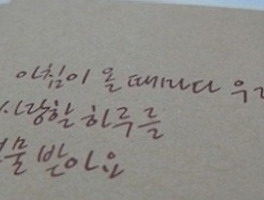 아침이 올 때마다 우리
사랑할 하루를
선물 받아요